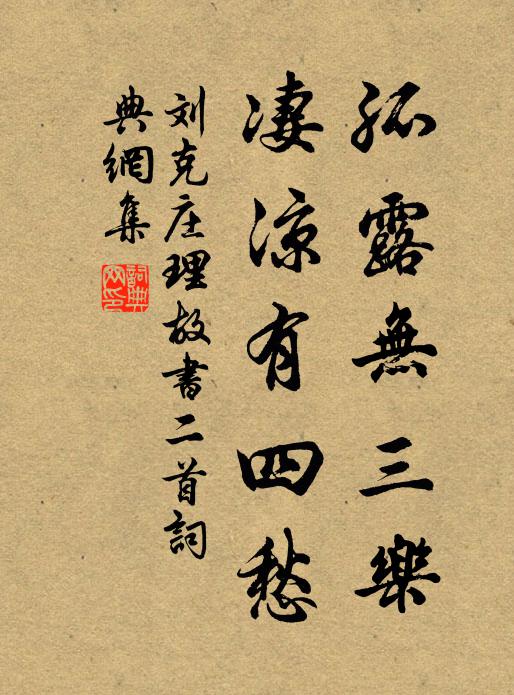 孤露無三樂
淒涼有四愁
刘克庄理故書二首詞
典網集
詞典
网印